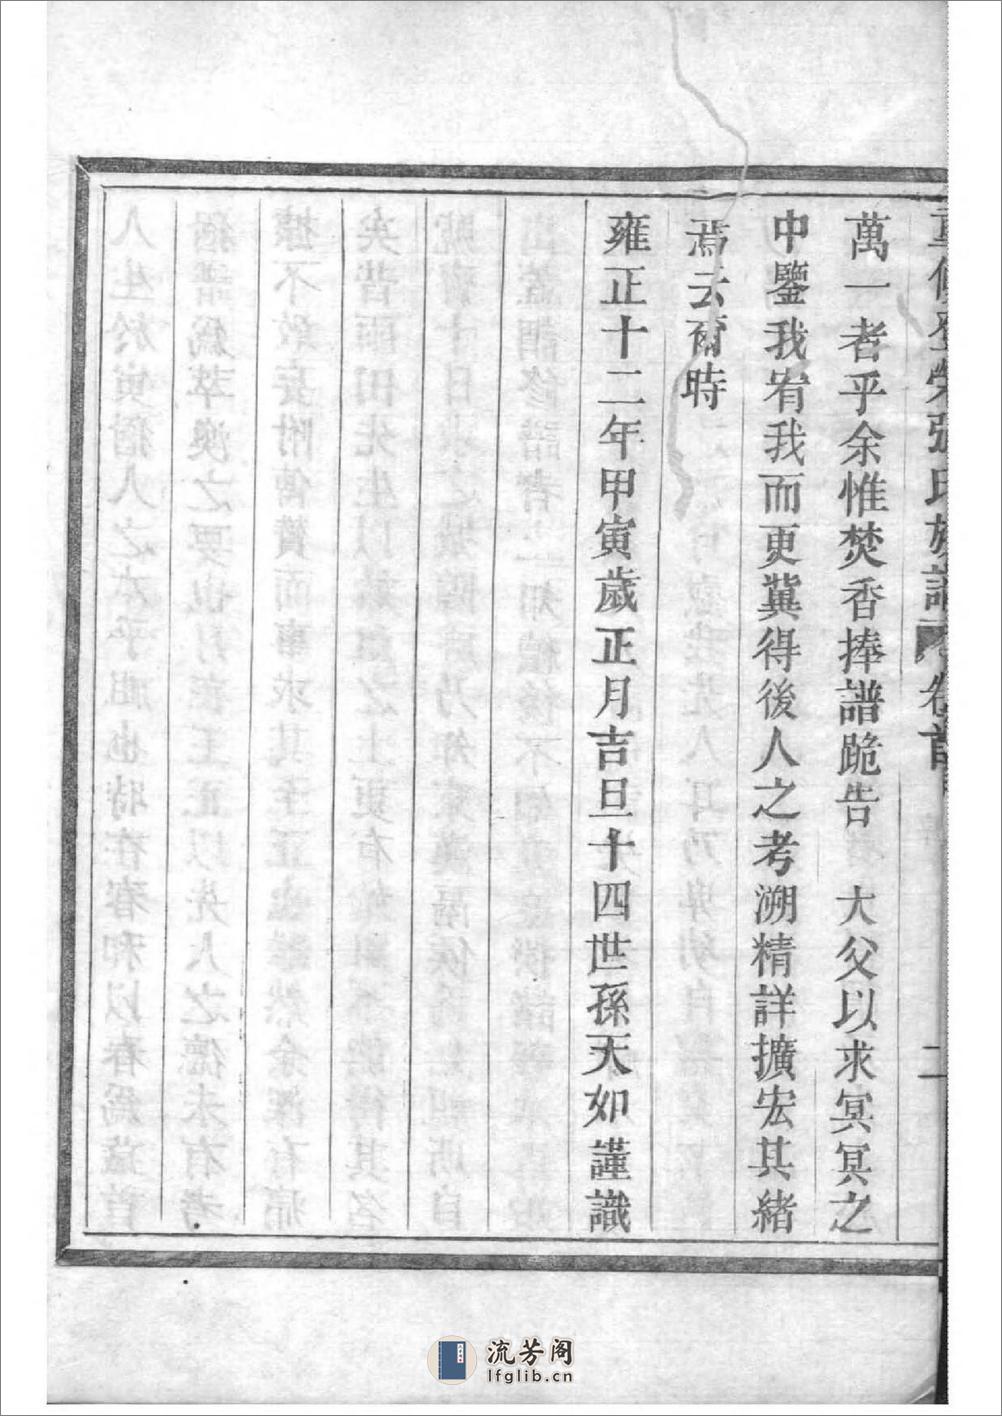 重修登榮張氏族譜 卷首 二
萬一者乎余惟焚香捧譜跪告 大父以求冥冥之
中鑒我宥我而更冀得後人之考溯精詳擴宏其緒
焉云爾時
雍正十二年甲寅歲正月吉旦十四世孫天如謹識
流芳阁
lfglib.cn